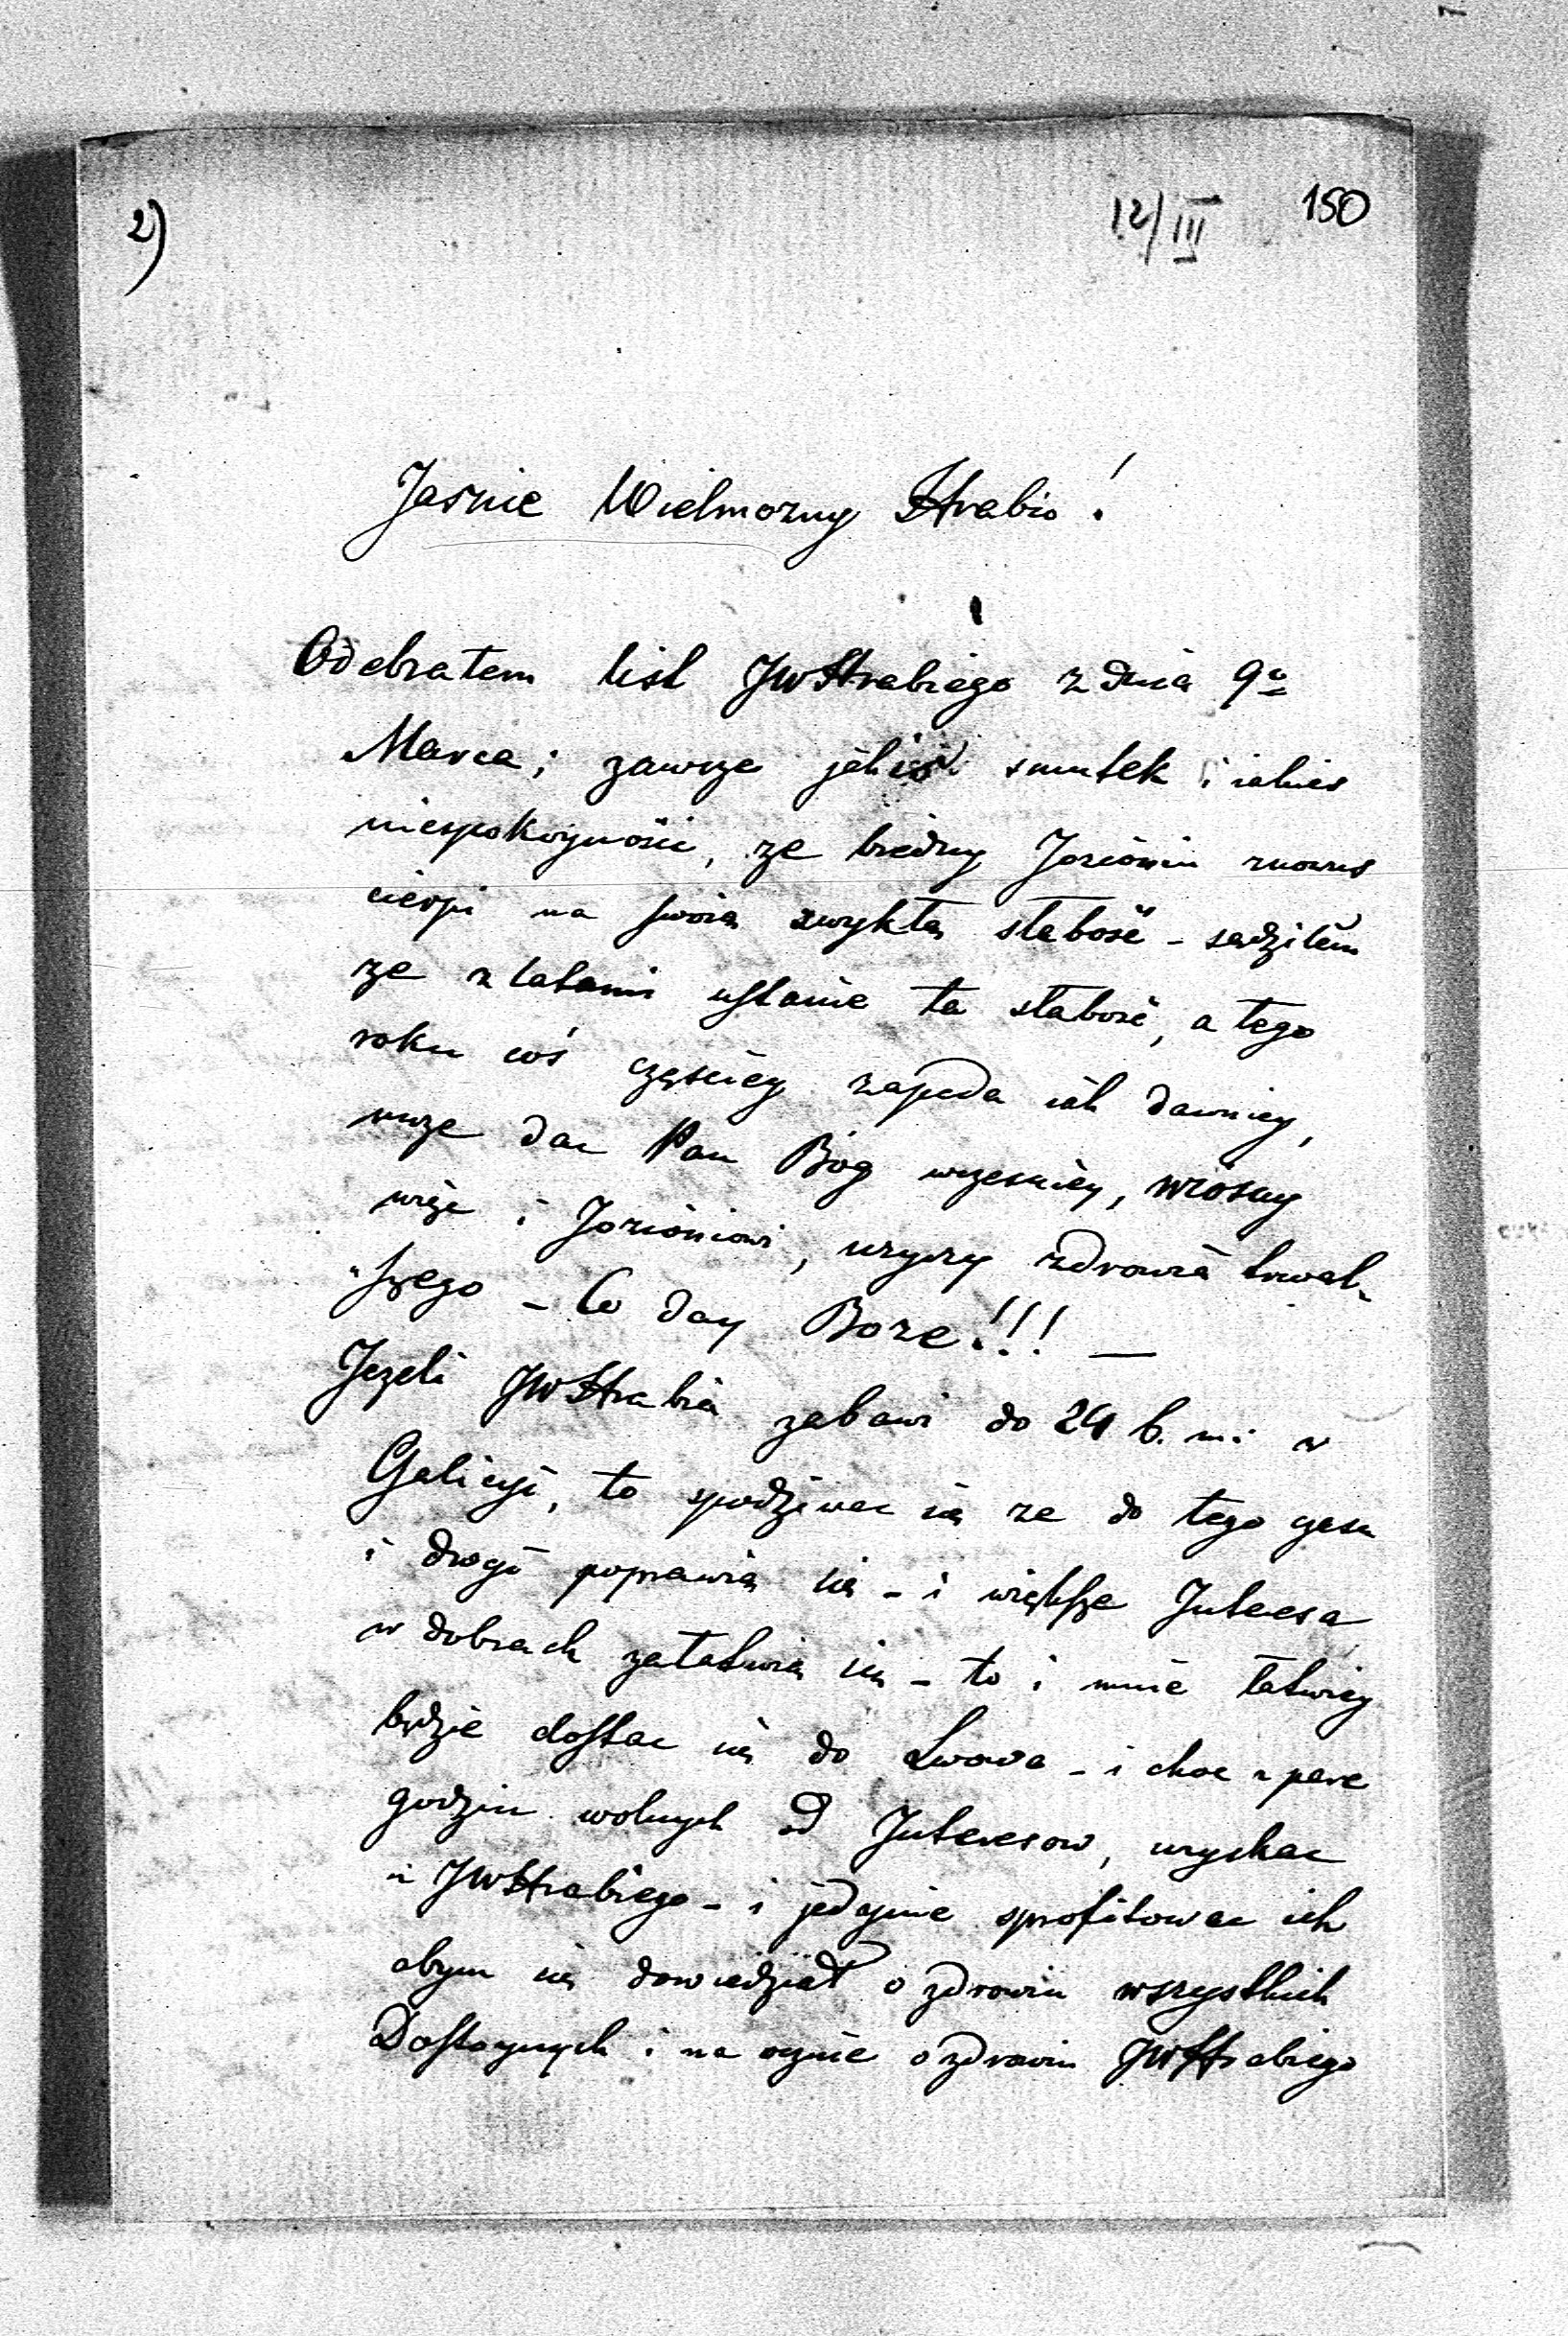 2)
12/III 150
Jasnie Wielmozny Hrabio!
Odebrałem list JWHrabiego z dnia 9o
Marca; zawsze jakiś smutek i iakies
niespokoyności, ze biedny Joziónio znowus
cierpi na swoią zwykłą słabość - sądziłem
ze z latami ustanie ta słabość, a tego
roku coś częściey zapada iak dawniey,
moze dac Pan Bóg wczesniey, wiosny
więc i Jozióniowi, uzyczy zdrowia trwal-
"szego - Co day Boze!!! —
Jezeli JWHrabia zabawi do 24 b. m. w
Galicyi, to spodziwac się ze do tego czasu
i drogi poprawią się - i większe Interesa
w dobrach załatwią się - to i mnie łatwiey
będzie dostac się do Lwowa - i choc z pare
godzin wolnych od Interesow, uzyskac
u JWHrabiego - i jedynie sprofitowac ich
abym się dowiedział o zdrowiu wszystkich
Dostoynych i na ocznie o zdrowiu JWHrabiego